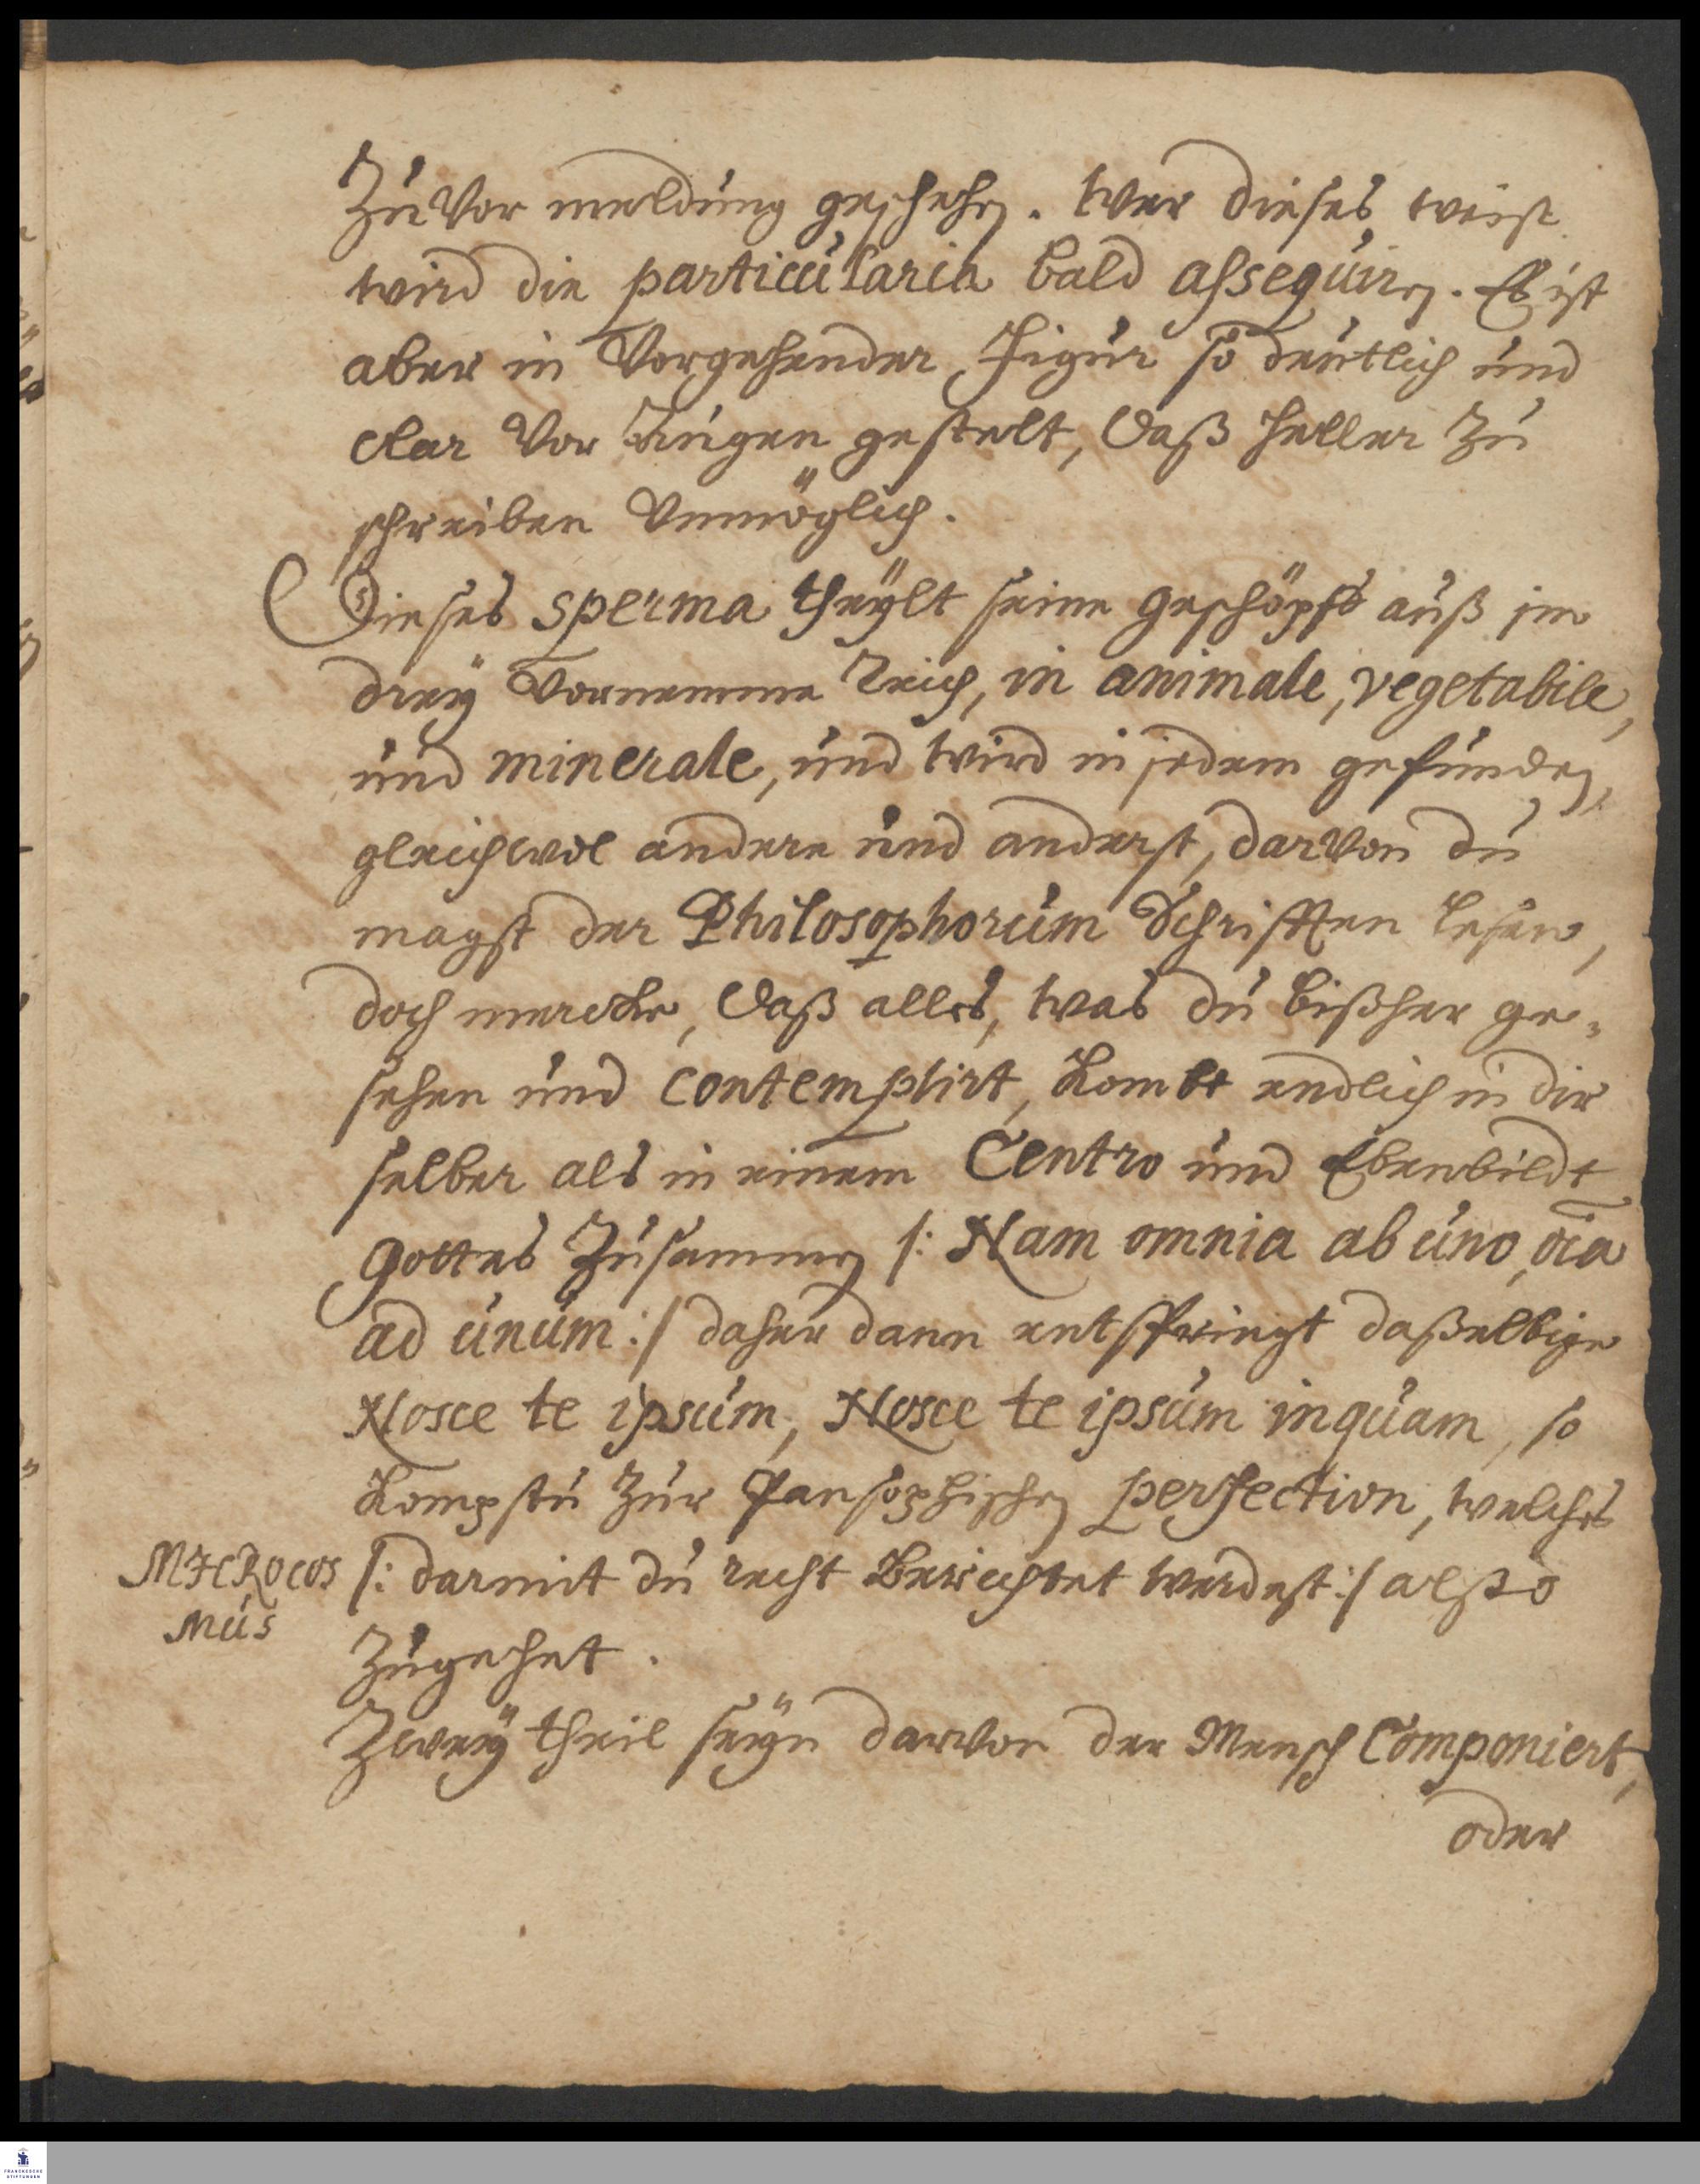 zuvor meldung geschehen. wer dieses weist
wird die particularia bald assequirn. Es ist
aber in Vorgehender Figur so deutlich und
clar Vor Augen gestelt, Daß heller zu
schreiben Unmöglich.
Dieses sperma theÿlt seine geschöpff auß in
dreÿ Vornemme Reich, in animale, vegetabile,
und minerale, und wird in jedem gefunden,
gleichwol andere und anderst, darvon du
magst der Philosophorum Schrifften lesen,
doch mercke, Daß alles, was du bißher ge=
sehen und contemplirt, kombt endlich in dir
selber als in einem Centro und Ebenbildt
Gottes zusammen /: Nam omnia ab uno, oīa
ad unum :/ daher dann entspringt daßelbige
Nosce te ipsum, Nosce te ipsum inquam, so
kompstu zur Pansophischen perfection, welches
MICROCOS
MUS
/: darmit du recht berichtet werdest :/ also
zugehet.
Zweÿ theil seÿn darvon der Mensch Componiert,
oder
FRANCKESCHE
STIFTUNGEN